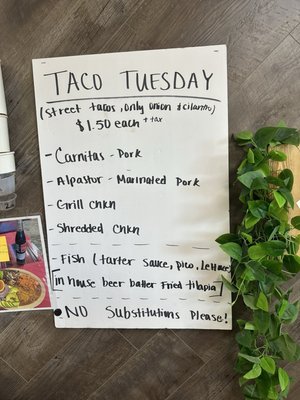 TACO TUESDAY
(street tacos, only onion & cilantro)
$1.50 each + tax
- Carnitas - Pork
- Alpastor - Marinated Pork
- Grill Chkn
- Shredded Chkn
- Fish (tarter sauce, pico, lettuce
[in house beer batter fried tilapia]
• NO Substitutions Please!